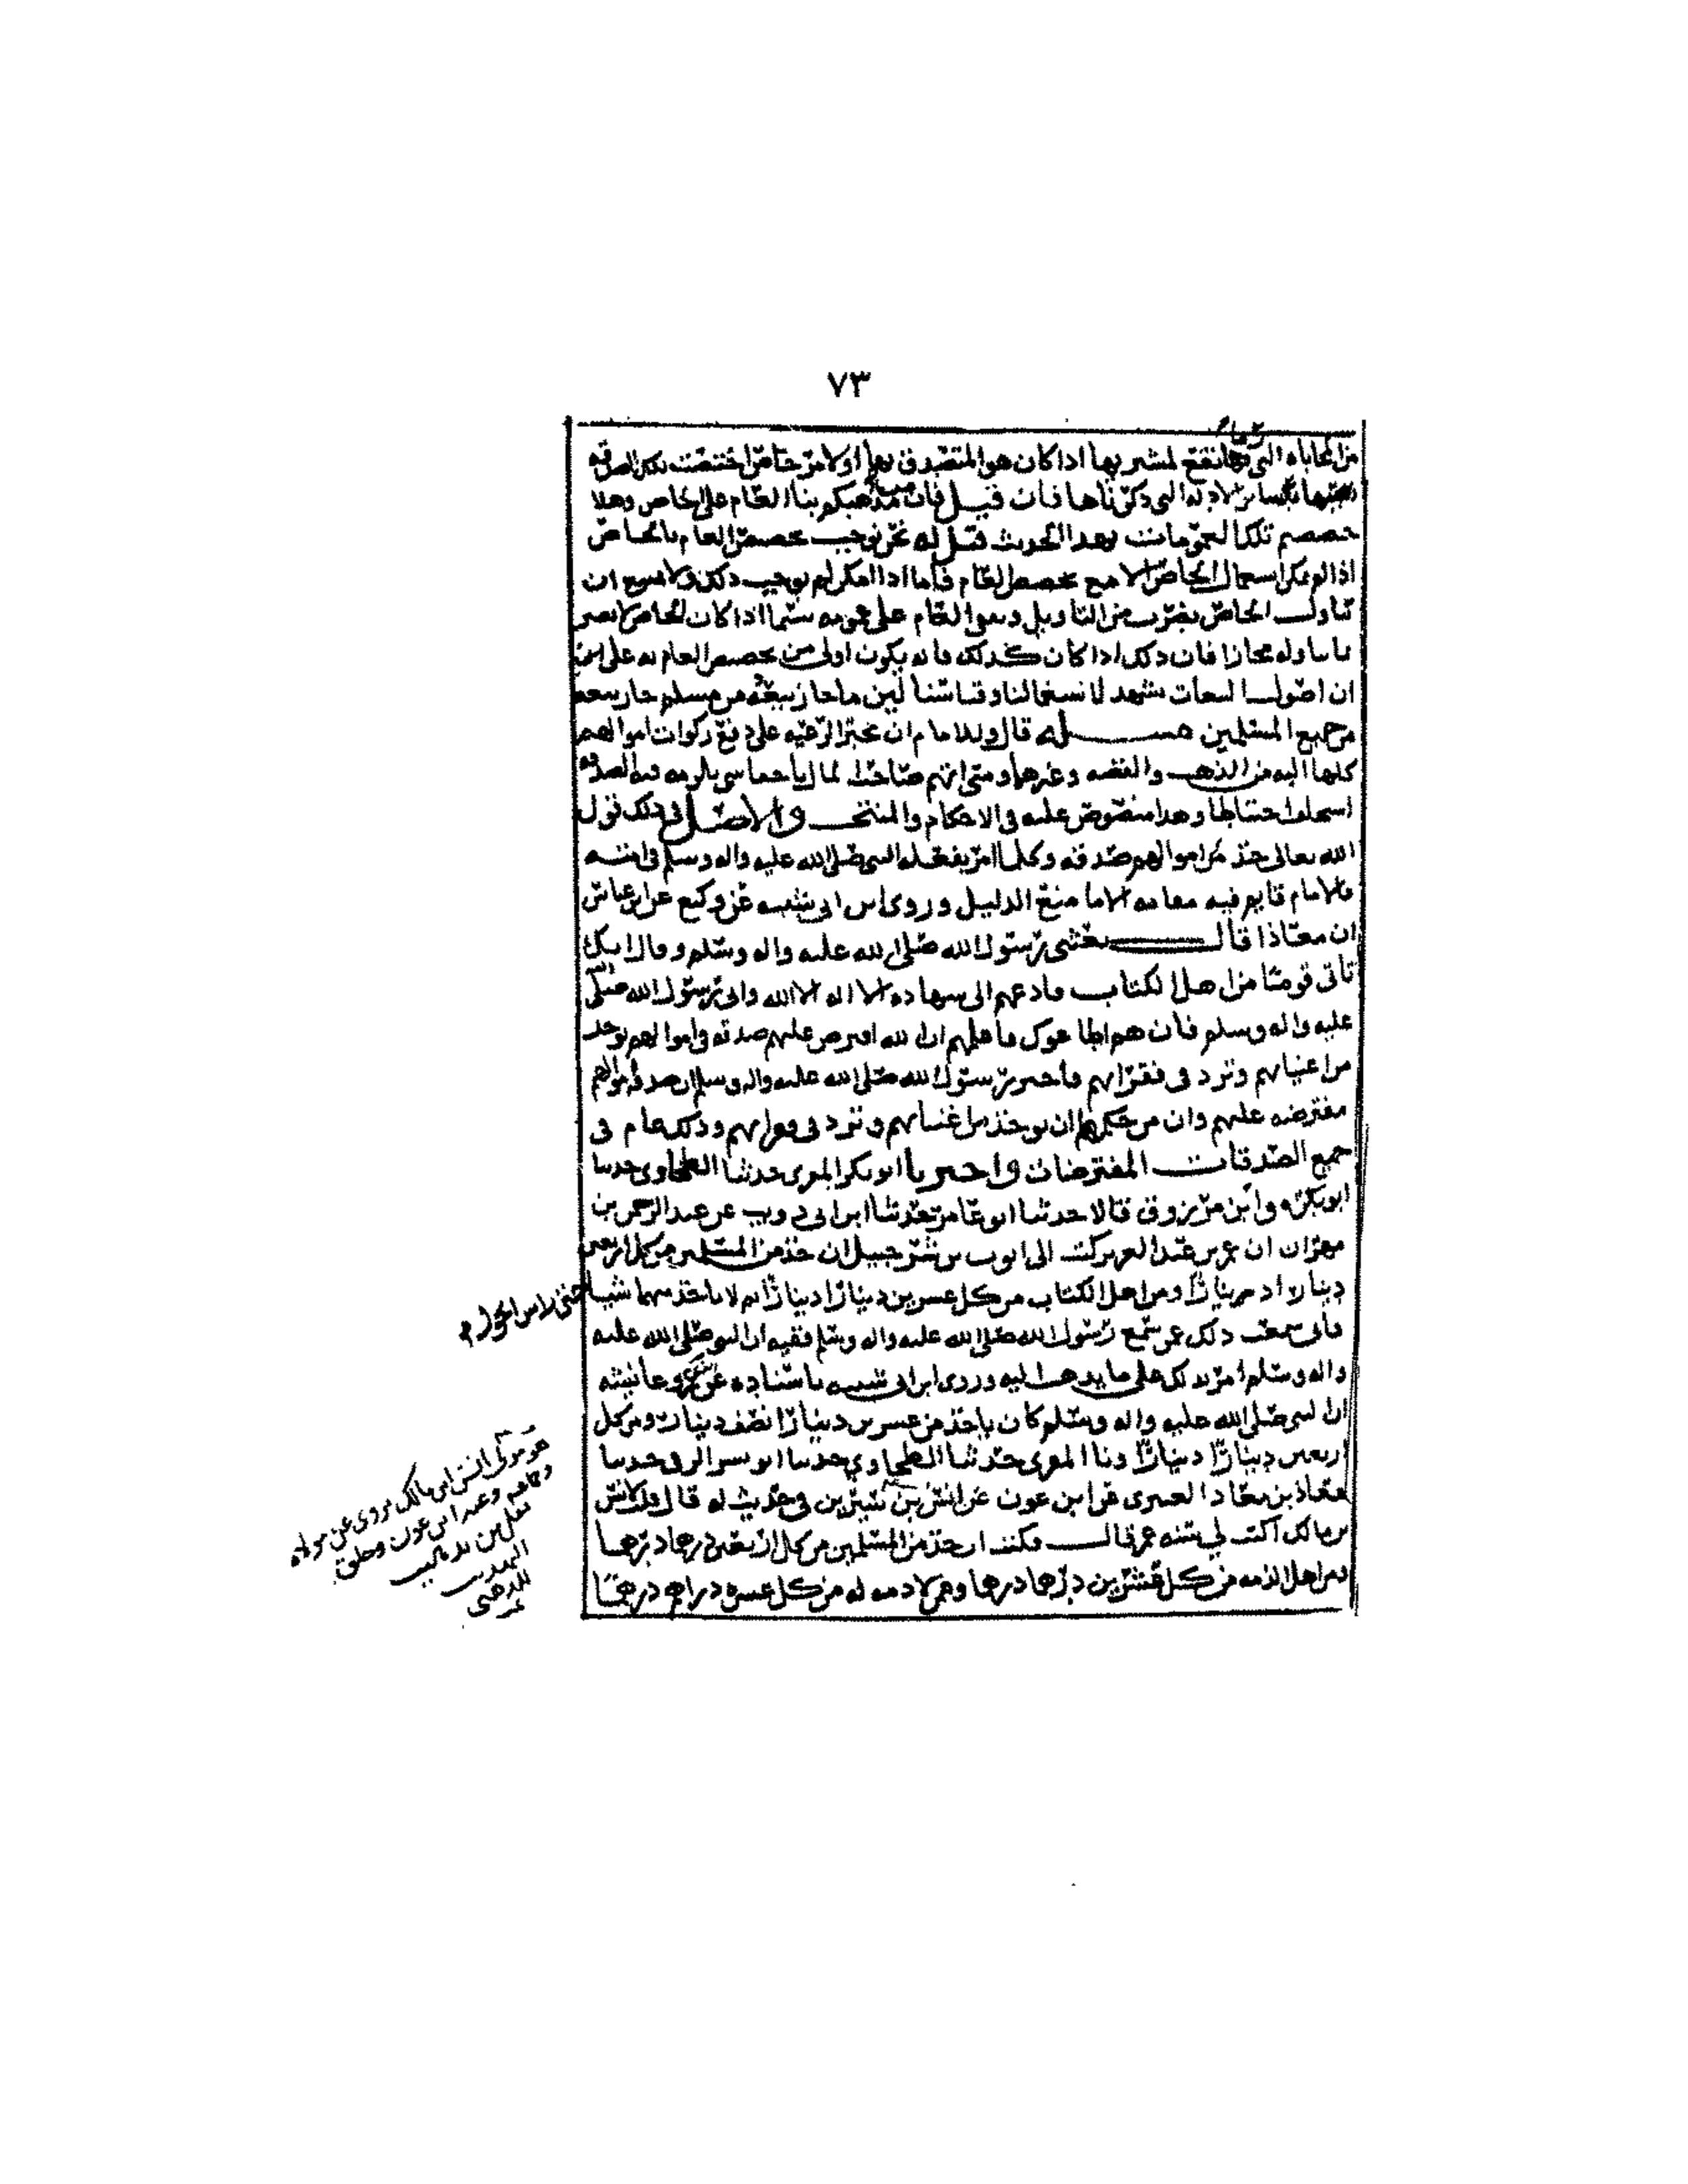 ٧٣
من المحاباه التي فيها نفع لمشتريها اذا كان هو المتصدق بها اولامر خاص اختصت بتلك الصدقه
بسائر الادله التي ذكرناها فان قيل فان مذهبكم بنا العام على الخاص وهلا
خصصتم تلك العمومات بهذا الحديث قيل له نحن نوجب تخصيص العام بالخاص
اذا لم يمكن استعمال الخاص الا مع تخصيص العام فاما اذا امكن لم نوجب ذلك ولا نمنع ان
نتاول الخاص بضرب من التاويل ونبقي العام على عمومه سيما اذا كان الخاص لا يصير
بما نتاوله مجازا فان ذلك اذا كان كذلك فانه يكون اولى من تخصيص العام به على
ان اصول البيعات تشهد لاستعمالنا وقياسنا لان ما جاز بيعه من مسلم جاز بيعه
من جميع المسلمين مســــله قال وللامام ان يجبر الرعيه على دفع زكوات اموالهم
كلها اليه من الذهب والفضه وغيرهما ومتى اتهم صاحب المال باخفا شي يلزمه فيه الصدقه
استحلفه احتياطا وهذا منصوص عليه في الاحكام والمنتخب والاصل في ذلك قول
الله تعالى خذ من اموالهم صدقه وكلما امر بفعله النبي صلى الله عليه واله وسلم في امته
فالامام قايم فيه مقامه الا ما منع الدليل وروى ابن ابي شيبه عن وكيع عن ابن عباس
ان معاذا قال بعثني رسول الله صلى الله عليه واله وسلم وقال انك
تاتي قوما من اهل الكتاب فادعهم الى شهاده الا اله الا الله واني رسول الله صلى الله
عليه واله وسلم فان هم اطاعوك فاعلمهم ان الله افترض عليهم صدقه في اموالهم توخذ
من اغنيائهم وترد في فقرائهم فاخبر رسول الله صلى الله عليه واله وسلم ان صدقه اموالهم
مفترضه عليهم وان من حكمها ان توخذ من اغنيائهم وترد في فقرائهم وذلك عام في
جميع الصدقات المفترضات واخبرنا ابو بكر المقري حدثنا الطحاوي حدثنا
ابو بكره وابن مرزوق قالا حدثنا ابو عامر حدثنا ابن ابي ذويب عن عبد الرحمن بن
مهران ان عمر بن عبد العزيز كتب الى ايوب بن شرحبيل ان خذ من المسلمين من كل اربعين
دينارا دينارا ومن اهل الكتاب من كل عشرين دينارا دينارا ثم لا تاخذ منهما شيا حتى راس الحول
فاني سمعت ذلك عمن سمع رسول الله صلى الله عليه واله وسلم ففيه ان النبي صلى الله عليه
واله وسلم امر بذلك على ما يذهب اليه وروى ابن ابي شيبه باسناده عن ابن عمر وعائشه
ان النبي صلى الله عليه واله وسلم كان ياخذ من عشرين دينارا نصف دينار ومن كل
اربعين دينارا دينارا وانا المقري حدثنا الطحاوي حدثنا ابو بشر الرقي حدثنا
معاذ بن معاذ العنبري عن ابن عون عن انس بن سيرين في حديث له قال قلت لانس
بن مالك اكتب لي سنه عمر قال فكتب ان خذ من المسلمين من كل اربعين درهما درهما
ومن اهل الذمه من كل عشرين درهما درهما وممن لا ذمه له من كل عشره دراهم درهما
هو مولى انس ابن مالك يروى عن مولاه
وعبد ابن عون وخلق